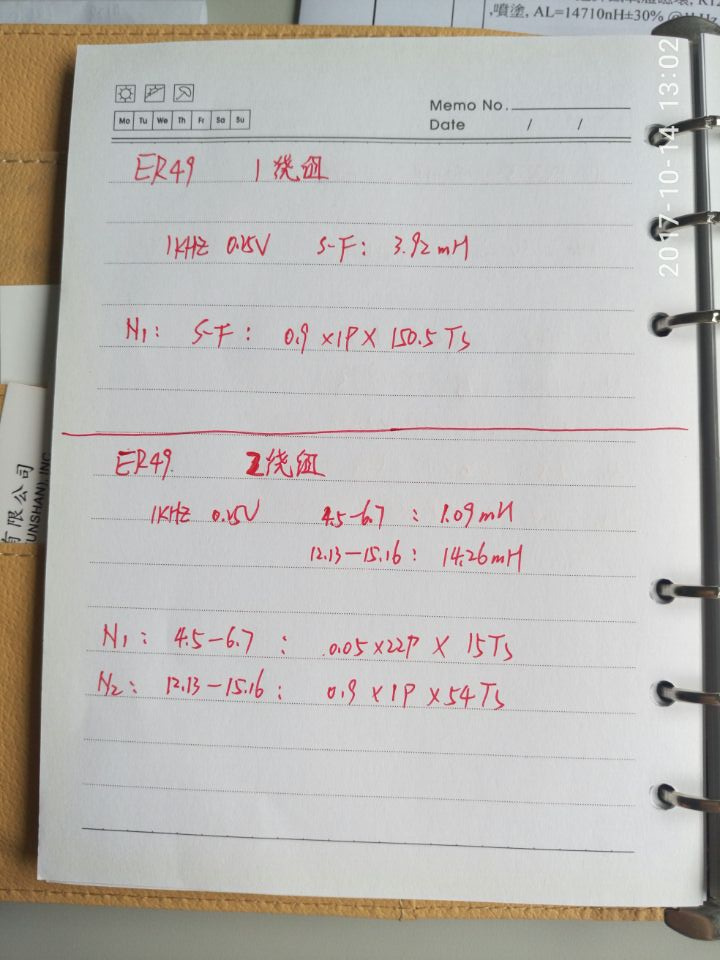 ,噴塗, AL=14710nH±30% @1kHz
2017-10-14 13:02
Memo No.
Mo Tu We Th Fr Sa Su
Date / /
ER49 1绕组
1KHZ 0.25V S-F: 3.92mH
N1: S-F: 0.9×1P×150.5Ts
ER49. 2绕组
1KHZ 0.25V 4.5-6.7 : 1.09mH
12.13-15.16: 14.26mH
N1: 4.5-6.7 : 0.05×22P×15Ts
N2: 12.13-15.16: 0.9×1P×54Ts
有限公司
UNSHAN), INC